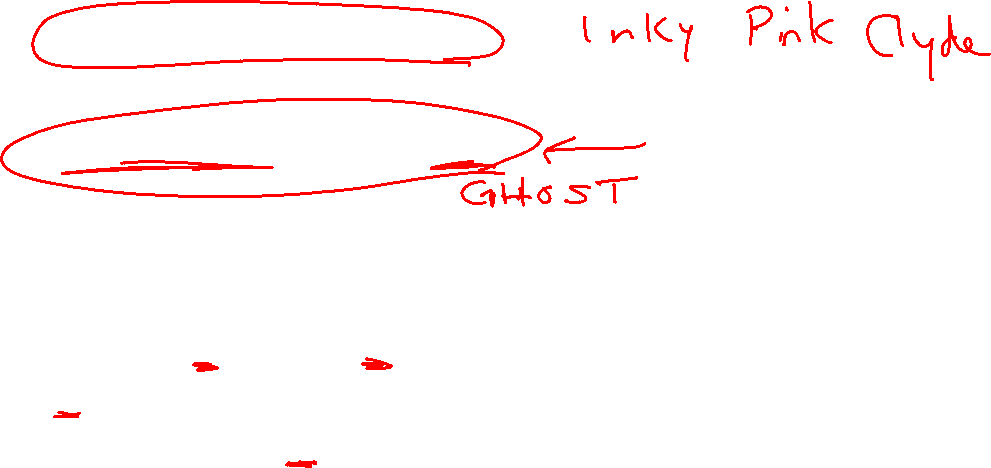 Inky Pink Clyde
GHOST